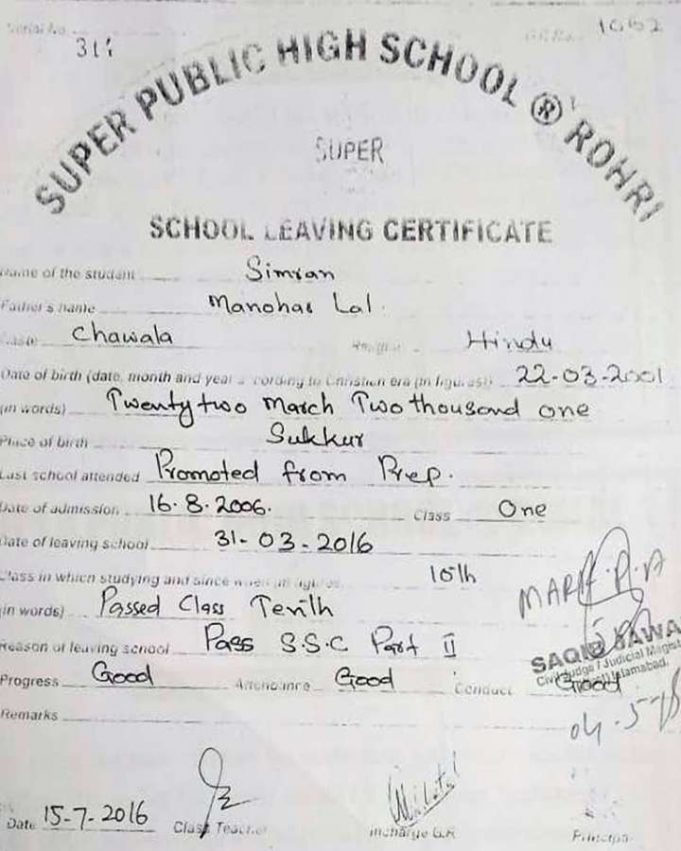 Serial No. 311 G.R.No. 1062
SUPER PUBLIC HIGH SCHOOL ® ROHRI
SUPER
SCHOOL LEAVING CERTIFICATE
Name of the student Simran
Father's name Manohar Lal.
Caste Chawala Religion Hindu
Date of birth (date, month and year according to Christian era (in figures)) 22-03-2001
(in words) Twenty two March Two thousand one
Place of birth Sukkur
Last school attended Promoted from Prep.
Date of admission 16.8.2006. Class One
Date of leaving school 31-03-2016
Class in which studying and since when in figures 10th
(in words) Passed Class Tenth
Reason of leaving school Pass S.S.C Part II
Progress Good Attendance Good Conduct Good
Remarks
MARK P.A
SAQIB JAWA
Civil Judge / Judicial Magist
Islamabad.
Date 15-7-2016 Class Teacher Incharge G.R. Principa